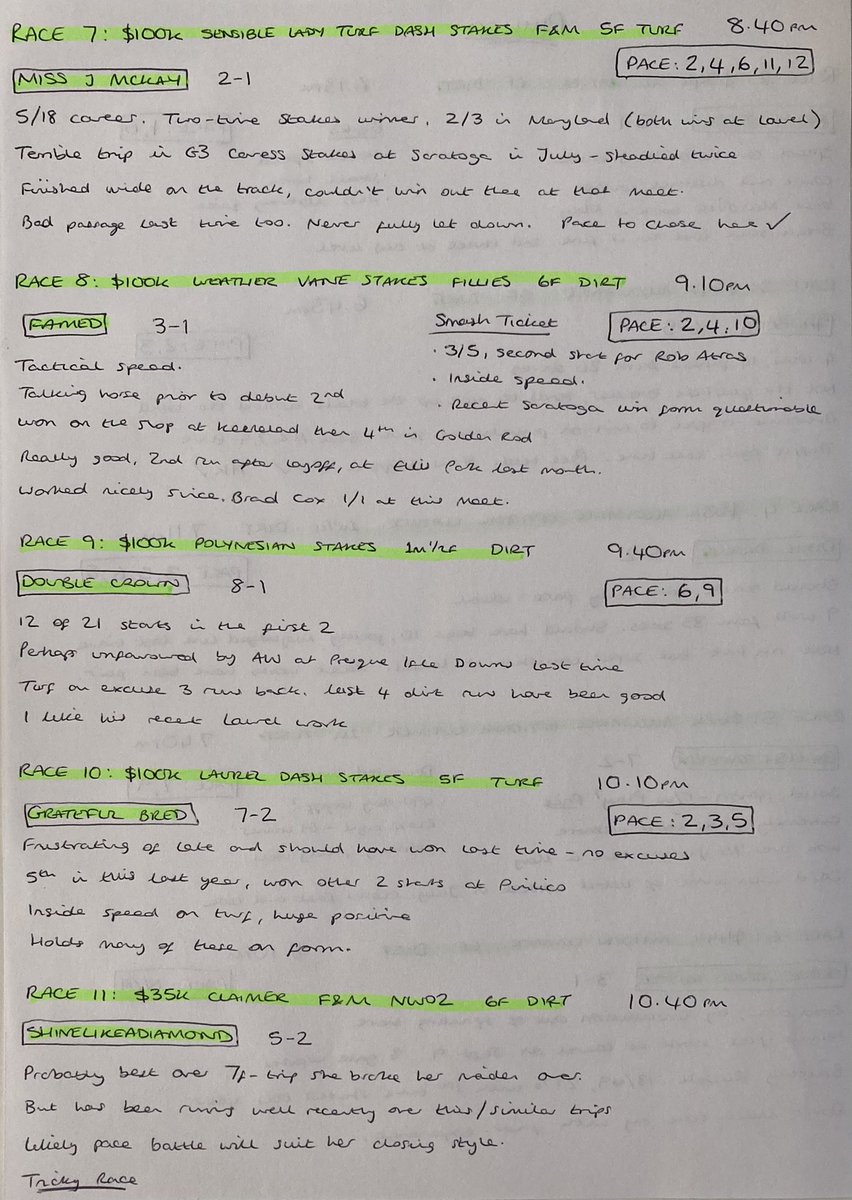 RACE 7: $100K SENSIBLE LADY TURF DASH STAKES F&M 5F TURF 8.40PM
PACE: 2,4,6,11,12
MISS J MCKAY 2-1
5/18 career. Two-time stakes winner. 2/3 in Maryland (both wins at Laurel)
Terrible trip in G3 Caress Stakes at Saratoga in July - steadied twice
Finished wide on the track, couldn't win out there at that meet.
Bad passage last time too. Never fully let down. Pace to chase here ✓
RACE 8: $100K WEATHER VANE STAKES FILLIES 6F DIRT 9.10PM
FAMED 3-1
Smash Ticket
PACE: 2,4,10
Tactical speed.
Talking horse prior to debut 2nd
Won on the slop at Keeneland then 4th in Golden Rod
Really good, 2nd run after layoff, at Ellis Park last month.
Worked nicely since. Brad Cox 1/1 at this meet.
· 3/5, second start for Rob Atras
· Inside speed.
· Recent Saratoga win form questionable
RACE 9: $100K POLYNESIAN STAKES 1M ½F DIRT 9.40PM
DOUBLE CROWN 8-1
PACE: 6,9
12 of 21 starts in the first 2
Perhaps unfavoured by AW at Presque Isle Downs last time
Turf an excuse 3 runs back. Last 4 dirt runs have been good
I like his recent Laurel work
RACE 10: $100K LAUREL DASH STAKES 5F TURF 10.10PM
GRATEFUL BRED 7-2
PACE: 2,3,5
Frustrating of late and should have won last time - no excuses
5th in this last year, won other 2 starts at Pimlico
Inside speed on turf, huge positive
Holds many of these on form.
RACE 11: $35K CLAIMER F&M NW02 6F DIRT 10.40PM
SHINELIKEADIAMOND 5-2
Probably best over 7f - trip she broke her maiden over.
But has been running well recently over this/similar trips
Likely pace battle will suit her closing style.
Tricky Race